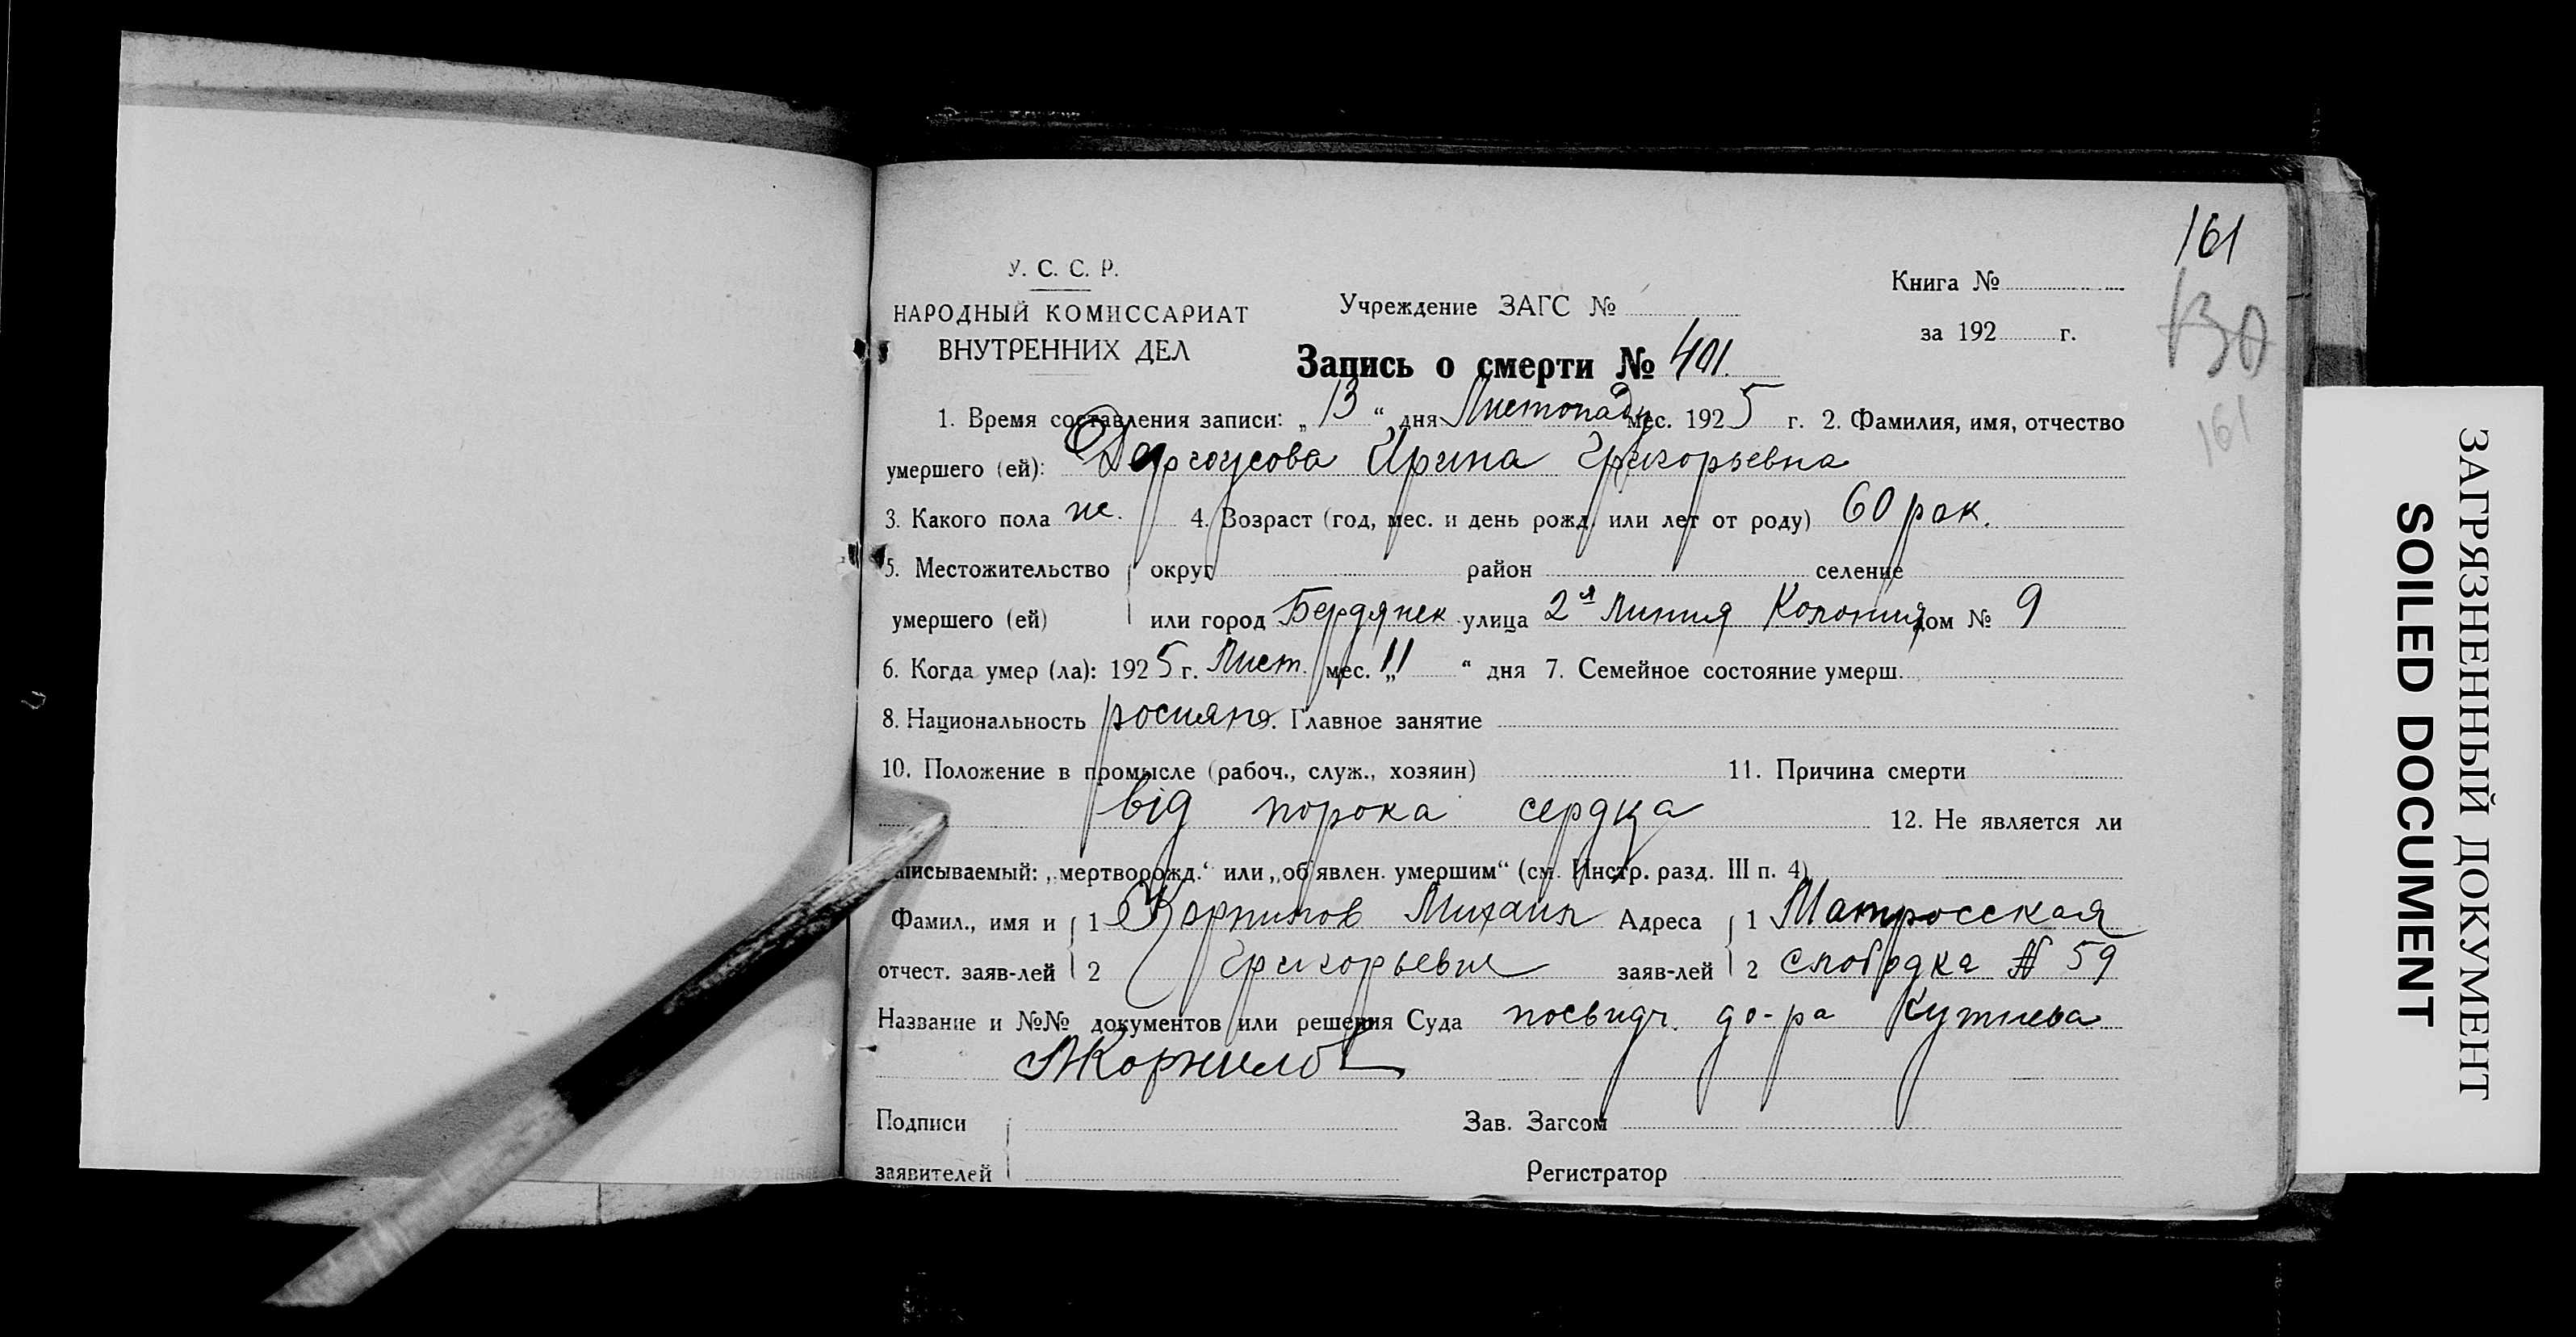 161
У. С. С. Р.
НАРОДНЫЙ КОМИССАРИАТ
ВНУТРЕННИХ ДЕЛ
Учреждение ЗАГС №
Книга №
за 192 г.
130
161
Запись о смерти № 401.
1. Время составления записи: „ 13 “ дня Листопаду мес. 1925 г. 2. Фамилия, имя, отчество
умершего (ей): Ирина Григорьевна
3. Какого пола 4. Возраст (год, мес. и день рожд. или лет от роду) 60 рок.
5. Местожительство округ район селение
умершего (ей) или город Бердянск улица 2я Линия Колония дом № 9
6. Когда умер (ла): 1925 г. Лист. мес. „ 11 “ дня 7. Семейное состояние умерш.
8. Национальность росияне. Главное занятие
10. Положение в промысле (рабоч., служ., хозяин) 11. Причина смерти
від порока сердца 12. Не является ли
записываемый: „мертворожд.“ или „об'явлен. умершим“ (см. Инстр. разд. III п. 4)
Фамил., имя и 1 Корнилов Михаил Адреса 1 Матросская
отчест. заяв-лей 2 Григорьевич заяв-лей 2 слободка № 59
Название и №№ документов или решения Суда посвидч. до-ра
МКорнилов
Подписи Зав. Загсом
заявителей Регистратор
ЗАГРЯЗНЕННЫЙ ДОКУМЕНТ
SOILED DOCUMENT